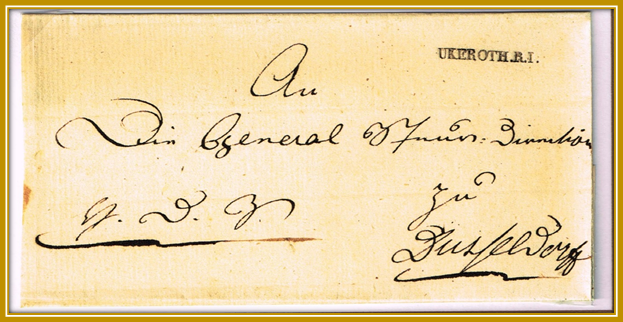 UKEROTH.R.I.
An
Die General Steuer-Direction
zu
Dusseldorff